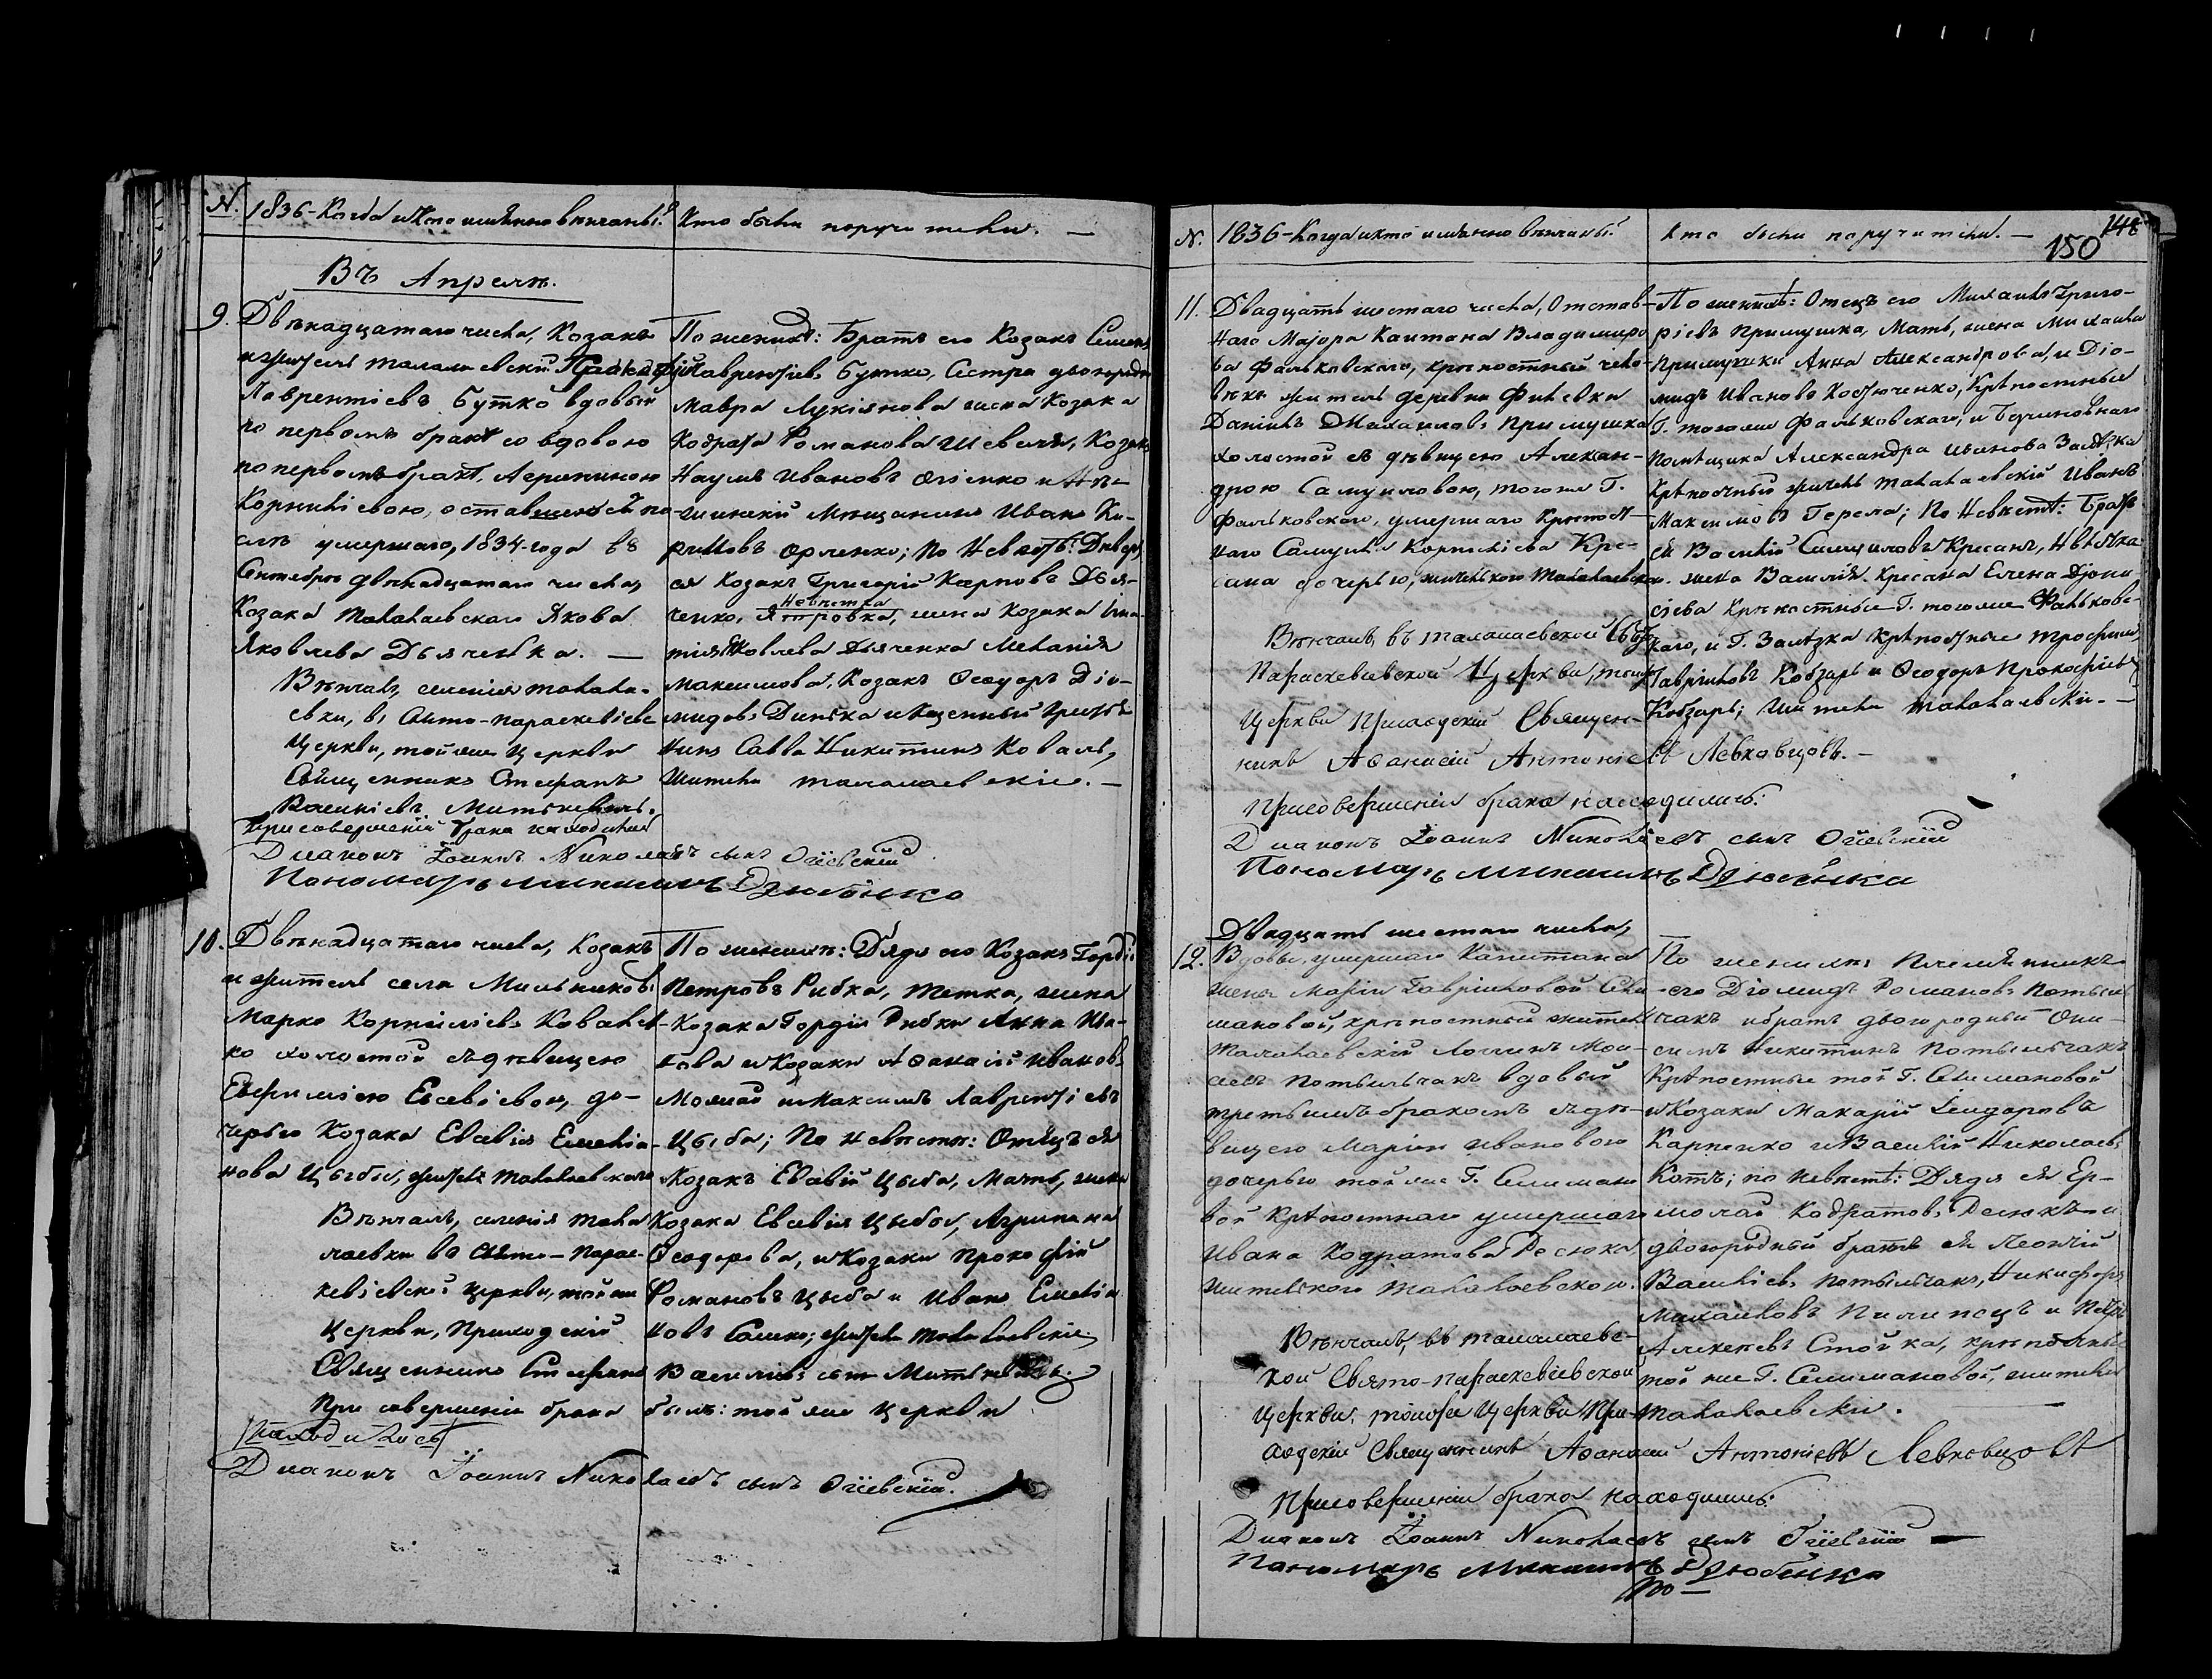 N. 1836-Когда и кто имянно венчаны? Кто были поручители. —
Въ Апреле.
9. Двенадцатаго числа, Козакъ
и житель талалаевскій Прокофій
Лаврентіевъ Бутко вдовый
по первомъ бракѣ со вдовою
по первомъ бракѣ, Агрипиною
Корниліевою, оставшеюся по-
слѣ умершаго, 1834-года въ
Сентябрѣ двѣнадцатаго числа,
Козака Талалаевскаго Якова
Яковлева Дьяченка. —
Вѣнчалъ, селенія талала-
евки, въ Свято-параскевіевс
Церкви, той же Церкви
Священникъ Стефанъ
Василіевъ Митькевичъ.
При совершеніи брака находились
Диаконъ Іоаннъ Николаевъ сынъ Огіевскій
Пономарь Дзюбенко
По женихѣ: Братъ его Козакъ Семенъ
Лаврентіевъ Бутко, Сестра двоюродна
Мавра Лукіянова жена Козака
Кодрата Романова Шевеля, Козакъ
Наумъ Ивановъ и Нѣ-
жинскій Мещанинъ Иванъ Ки-
риловъ; По Невѣстѣ: Дѣверь
ея Козакъ Григорій Карповъ Дья-
ченко, Невѣстка
Ятровка, жена Козака Игна-
тія Яковлева Дьяченка Меланія
Максимова, Козакъ Ѳеодоръ Діо-
мидовъ и Казенный Крестья
нинъ Савва Никитинъ Коваль,
Жители талалаевскіе. —
10. Двѣнадцатаго числа, Козакъ
и житель села Мильниковъ
Марко Корниліевъ Ковален-
ко холостой съ дѣвицею
Евфиміею Евсевіевою, до-
черью Козака Евсевія Емеліа-
нова Цыбы, жителя Талалаевскаго
Вѣнчалъ, селенія тала
лаевки во Свято-Парас-
кевіевской церкви, той же
Церкви, Приходскій
Священникъ Стефанъ Василіевъ сынъ Митькевичъ.
При совершеніи брака былъ: той же церкви
находилось
Диаконъ Іоаннъ Николаевъ сынъ Огіевскій.
По женихѣ: Дядя его Козакъ Гордій
Петровъ Рибка, тетка, жена
Козака Гордія Рибки Анна Ива-
нова и Козаки Аѳанасій Ивановъ
и Максимъ Лаврентіевъ
Цыба; По Невѣстѣ: Отецъ ея
Козакъ Евсевій Цыба, Мать, жена
Козака Евсевія Цыбы, Агрипина
Ѳеодорова, и Козаки Прокофій
Романовъ Цыба и Иванъ Емеліа
новъ Сашко; жители Талалаевскіе
N. 1836-Когда и кто имянно вѣнчаны? Кто были поручители. — 148
150
11. Двадцать шестаго числа, Отстав-
наго Майора Каитана Владимиро
ва Фальковскаго, крѣпостный чело-
вѣкъ житель деревни Филевки
Даніилъ Михаиловъ Примушка
холостой съ дѣвицею Алексан-
дрою Самуиловою, того же Г.
Фальковскаго, умершаго Крѣпост-
наго Самуила Корниліева Кре-
сана дочерью, жителькою Талалаевскою.
Вѣнчалъ въ талалаевской Свято
Параскевіевской Церкви, той же
Церкви Приходскій Священ-
никъ Аѳанасій Антоніевъ Левковцовъ. —
При совершеніи брака находились:
Диаконъ Іоаннъ Николаевъ сынъ Огіевскій
Пономарь Дзюбенко
По женихѣ: Отецъ его Михаилъ Григо-
ріевъ Примушка, Мать, жена Михаила
Примушки Анна Александрова, и Діо-
мидъ Ивановъ Костюченко, Крѣпостные
Г. того же Фальковскаго, и Подчиновнаго
Помѣщика Александра Иванова
Крѣпостный житель талалаевскій Иванъ
Максимовъ Герела; По Невѣстѣ: Братъ
ея Василій Самуиловъ Кресанъ, Невѣстка
жена Василія Кресана Елена Діони
сіева Крѣпостные Г. того же Фальковс-
каго, и Г. Крѣпостные Трофимъ
Гавріиловъ Кобзарь и Ѳеодоръ Прокофіевъ
Кобзарь; жители талалаевскіе. —
Двадцать шестаго числа,
12. Вдовы, умершаго Капитана
жены Маріи Гавріиловой Сели
мановой, крѣпостный житель
Талалаевскій Логинъ Мои-
сеевъ Потыльчакъ вдовый
третьимъ бракомъ съ дѣ-
вицею Маріею Ивановою
дочерью той же Г. Селимано
вой Крѣпостнаго умершаго
Ивана Кодратова Десюка
жителькою Талалаевскою.
Вѣнчалъ, въ талалаевс-
кой Свято-параскевіевской
Церкви, той же Церкви При-
ходскій Священникъ Аѳанасій Антоніевъ Левковцовъ
При совершеніи брака находились:
Диаконъ Іоаннъ Николаевъ сынъ Огіевскій —
Пономарь Дзюбенко
По женихѣ Племянникъ
его Діомидъ Романовъ Потыль
чакъ и братъ двоюродный Они-
симъ Никитинъ Потыльчакъ
Крѣпостные той Г. Селимановой
и Козаки Макарій Сидоровъ
Карпенко и Василій Николаевъ
Котъ; по невѣстѣ: Дядя ея Ер-
молай Кодратовъ Десюкъ и
двоюродный братъ ея Леонтій
Василіевъ Потыльчакъ, Никифоръ
Михаиловъ Пилипецъ и Петръ
Алексѣевъ Стойка, крѣпостные
той же Г. Селимановой, жители
талалаевскіе. —